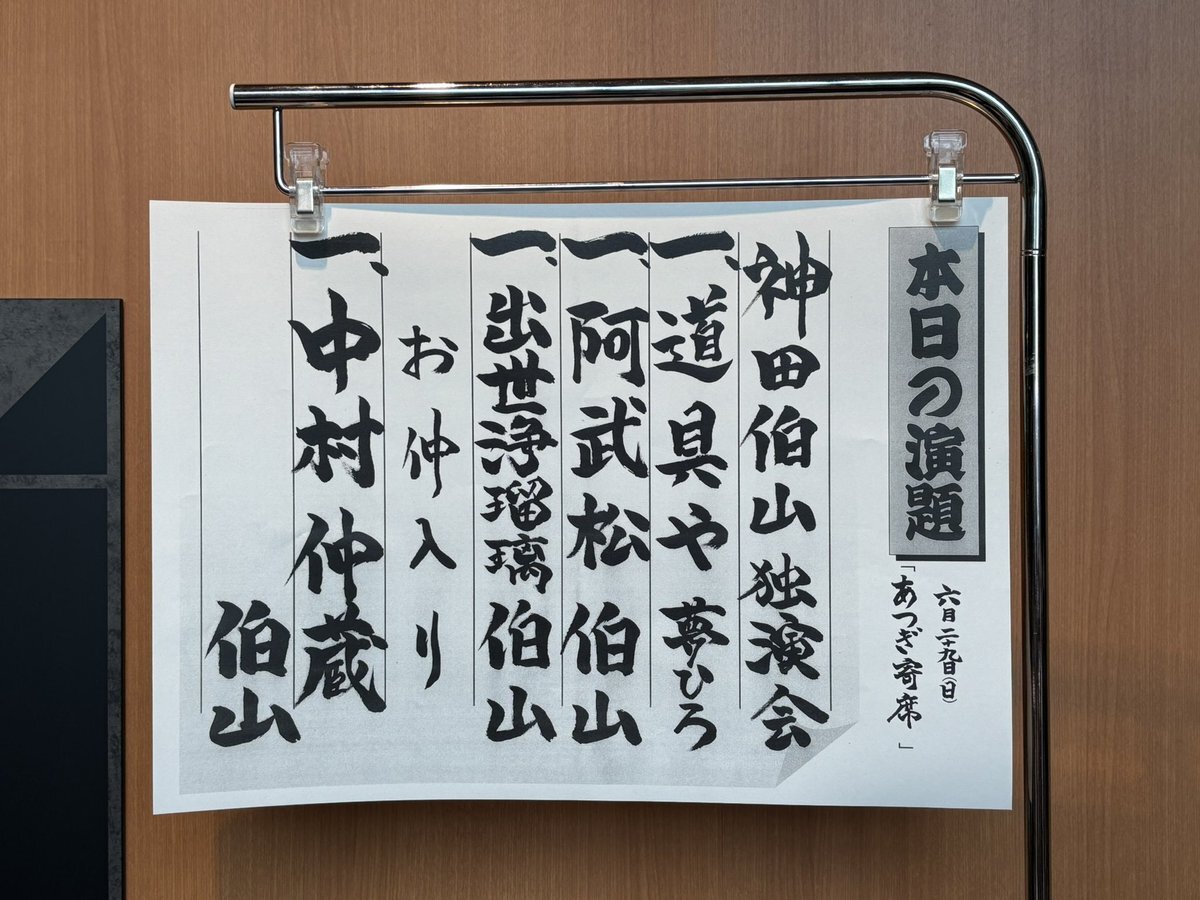 本日の演題
六月二十九日(日)
「あつぎ寄席」
神田伯山独演会
一、道具や 夢ひろ
一、阿武松 伯山
一、出世浄瑠璃 伯山
お仲入り
一、中村仲蔵
伯山